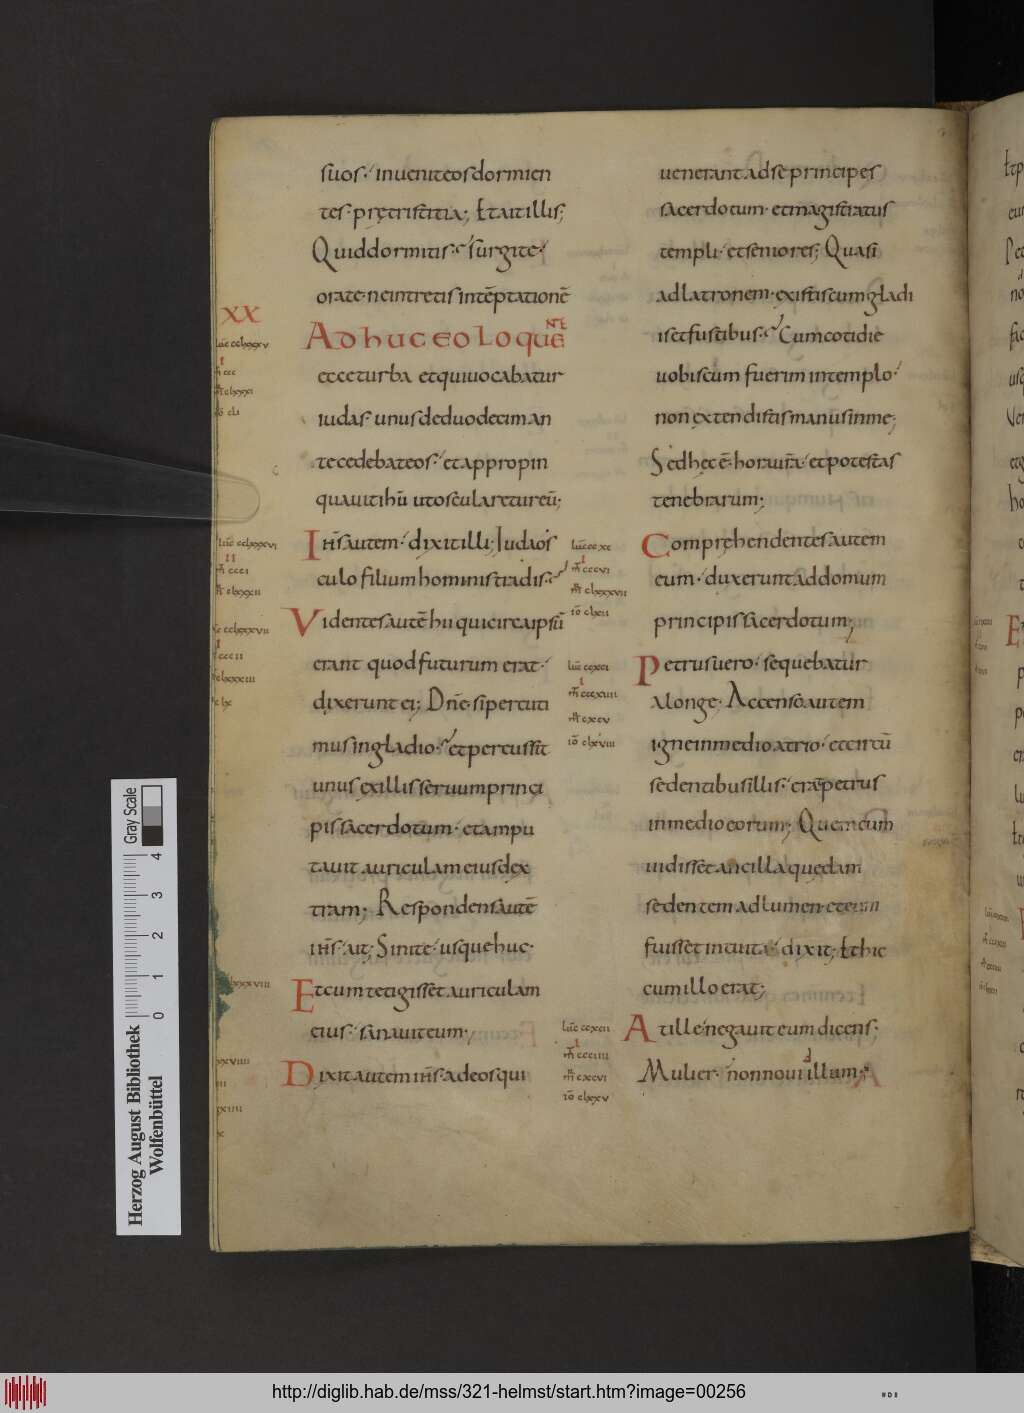 suos·/ inueniteos dormien
tes· prętristitia; Etait illis;
Quid dormitis· surgite·/
orate· neintretis intēptationē
XX
Adhuc eo loquente
ecce turba et qui uocabatur
iudas· unus de duodecim an
tecedebat eos·/ et appropin
quauit ihū ut oscularetur eū;
Ihs autem·/ dixit illi; Iuda os
culo filium hominis tradis·
Videntes autē hii qui circa ipsū
erant quod futurum erat·/
dixerunt ei; Dnē· si percuti
mus in gladio· et percussit
unus ex illis seruum princi
pis sacerdotum·/ et ampu
tauit auriculam eius dex
tram; Respondens autē
ihs·/ ait; Sinite·/ usque huc·
Et cum tetigisset auriculam
eius·/ sanauit eum;
Dixit autem ihs· ad eos qui
uenerant ad se principes
sacerdotum· et magistratus
templi·/ et seniores; Quasi
ad latronem· existis cum gladi
is et fustibus· Cum cotidie
uobiscum fuerim in templo·/
non extendistis manus in me;
Sed hec ē· hora urā·/ et potestas
tenebrarum;
Comprehendentes autem
eum·/ duxerunt ad domum
principis sacerdotum;
Petrus uero·/ sequebatur
a longe· Accenso autem
igne in medio atrio·/ et circū
sedentibus illis·/ erat petrus
in medio eorum; Quem cum
uidisset ancilla quędam
sedentem ad lumen· et eum
fuisset intuita·/ dixit; Et hic
cum illo erat;
At ille negauit eum dicens;
Mulier·/ non noui illum·
Herzog August Bibliothek
Wolfenbüttel
0 1 2 3 4
Gray Scale
http://diglib.hab.de/mss/321-helmst/start.htm?image=00256